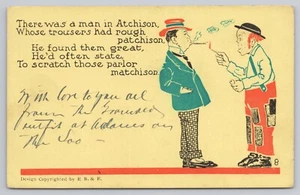 There was a man in Atchison,
Whose trousers had rough
patchison,
He found them great,
He'd often state,
To scratch those parlor
matchison.
With love to you all
from the
outfit at Adams on
the
Design Copyrighted by
8